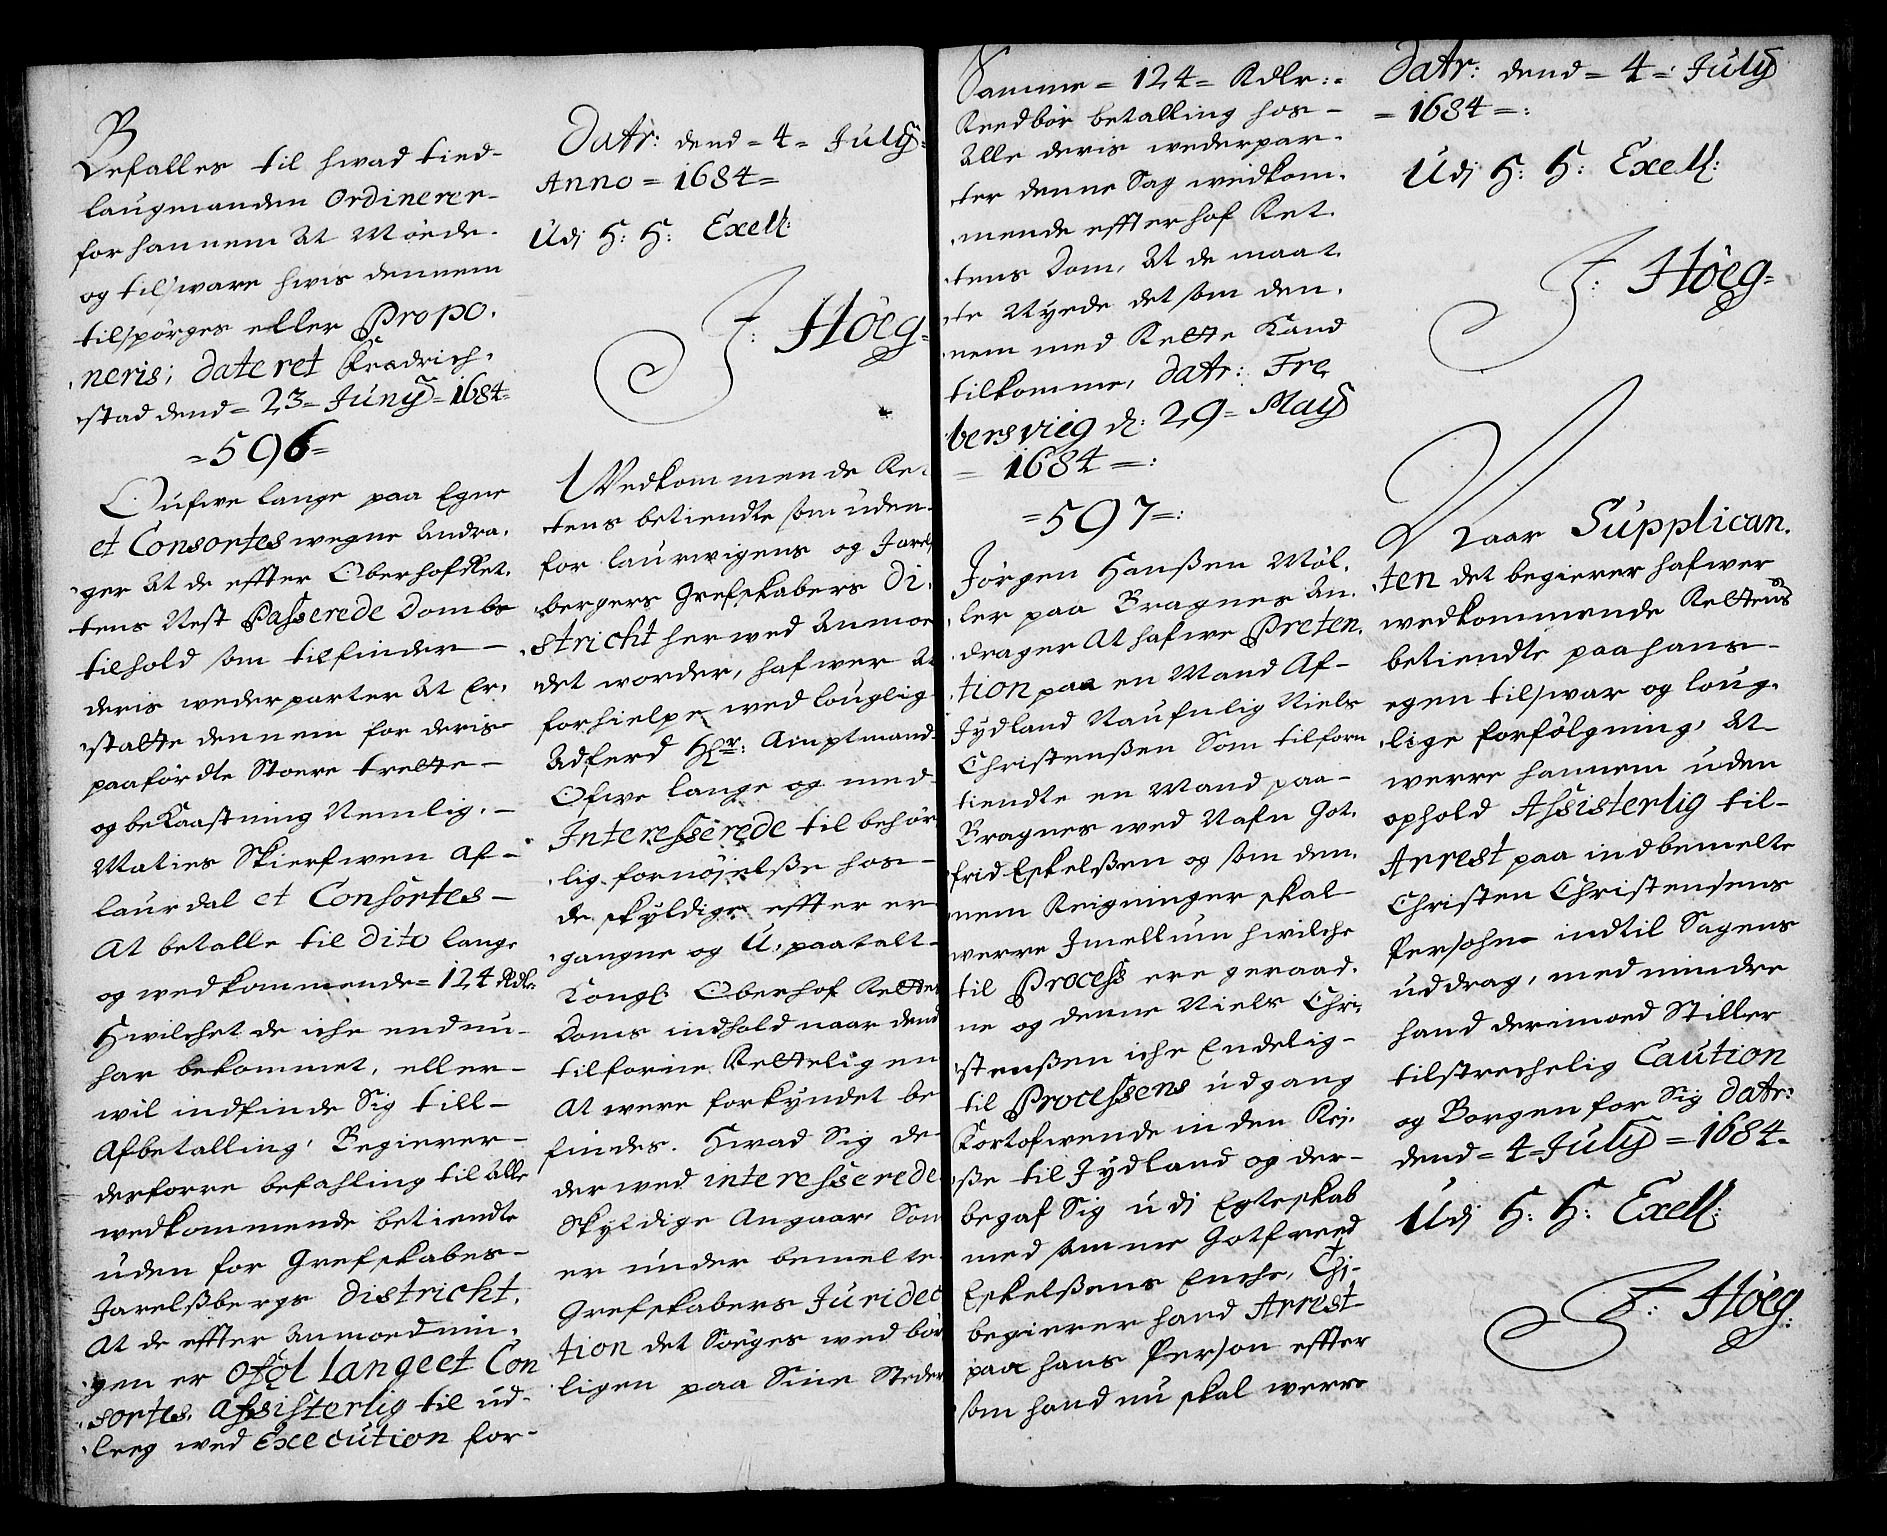 Befalles til hwad tied-
laugmanden Ordinerer-
for hannem At Möede-
og tilsware hwis dennem
tilspörges eller Propo-
neris; dateret Fredrich-
stad dend = 23 = Junÿ = 1684 =
= 596 =
Oufwe lange paa Egne
et Consortes wegne Andra-
ger At de effter Oberhofret-
tens Nest Passerede Dombs
tilhold som tilfinder-
deris wederparter At Er-
statte dennem for deris
paafördte Stoere trette-
og bekaastning Nemlig.-
Maties Skierfwen af-
laurdal et Consortes-
At betalle til dito lange
og wedkommende = 124 Rdlr:
Hwilchet de iche endnu-
har bekommet, eller-
wil indfinde Sig till-
Afbetalling, Begierer-
derforre befahling til Alle
wedkommende betiendte
uden for Grefskabes-
Jarelßbergs district,
At de effter Anmoednin-
gen er Ofgl lange et Con
sortes, assisterlig til ud-
leeg wed Execution for-
Datr: dend = 4 = Julÿ:
Anno = 1684 =
Udj H: H: Exell:
J: Höeg =
Wedkommende Ret-
tens betiendte som uden-
for laurwigens og Jarelß
bergers Grefskabers Di-
stricht herwed Anmoe
det worder, hafwer At
forhielpe wed louglig
Adferd Hr: Amptmand
Ofwe lange og med-
Interesserede til behör
lig fornöjelße hos-
de skyldige effter er-
gangne og U-paatalt-
Kongl: Oberhof Rettes
Doms indhold naar dend
tilforne Rettelig en
At were forkyndet be
findes. Hwad Sig de-
der wed interesserede
Skyldige Angaar, Som
er under bemelte-
Grefskabers Juridec
tion det Söeges wed bör
ligen paa Sine Steder
Samme = 124 = Rdlr: =
Reedbör betalling hos-
Alle deris wederpar-
ter denne Sag wedkom-
mende effterhof Ret-
tens Dom, At de maat-
te Nyede det som den-
nem med Rette Kand
tilkomme, datr: Fre
bersvieg d: 29 = Maÿ
= 1684 =:
= 597 =:
Jörgen Hanßen Möl-
ler paa Bragnes An-
drager At hafwe Preten-
tion paa en Mand Af-
Jydland Naufnlig Niels
Christenßen Som tilforn
tiendte en Mand paa-
Bragnes wed Nafn Got-
frid Eskelßen og som den-
nem Reigninger skal
werre Jmellum hwilche
til Process ere geraad-
ne og denne Niels Chri-
stenßen iche Endelig-
til Processens udgang
Kortofwende inden Rej-
ße til Jydland og der-
begaf Sig udj Egteskab
med samme Gotfreed
Eskelßens Enche, Thj-
begierer hand Arrest
paa hans Person effter
som hand nu skal werre
Datr: dend = 4 = Julÿ
= 1684 =:
Udj H: H: Exell:
J: Höeg =
Naar Supplican-
ten det begierer hafwer
wedkommende Rettens
betiendte paa hans-
egen tilswar og loug-
lige forfölgning, At-
werre hannem uden
ophold Assisterlig til-
Arrest paa indbemelte
Christen Christensens
Persohn indtil Sagens
uddrag, med mindre
hand derimoed Stiller
tilstrechelig Caution
og Borgen for Sig datr:
dend = 4 = Julÿ = 1684 =
Udj H: H: Exell:
J: Höeg: